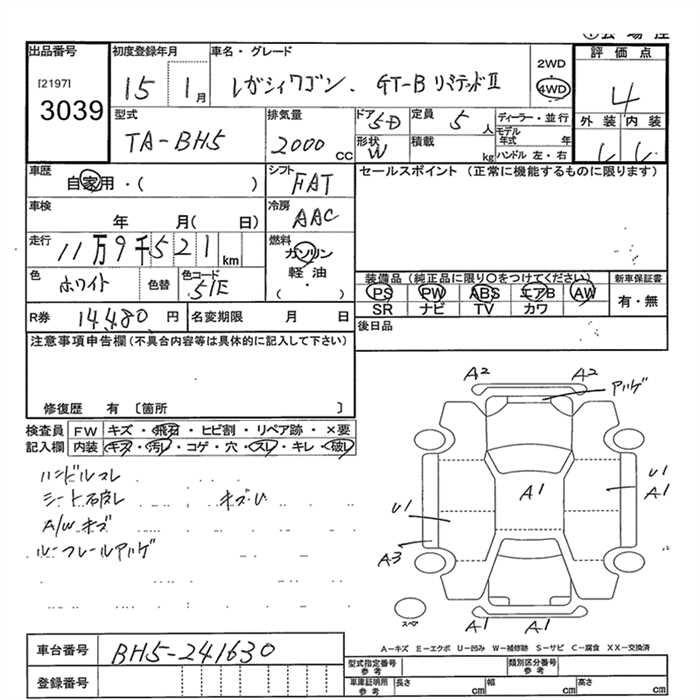 出品番号
[2197]
3039
初度登録年月
15 1月
車名・グレード
レガシィワゴン. GT-B リミテッドⅡ
2WD
4WD
評価点
4
外装 内装
型式
TA-BH5
排気量
2000cc
ドア 5D
形状 W
定員 5人
積載 kg
ディーラー・並行
モデル年式 年
ハンドル 左・右
車歴
自家用・( )
シフト FAT
セールスポイント (正常に機能するものに限ります)
車検 年 月( 日)
冷房 AAC
走行 11万9千521km
燃料
ガソリン
軽油
・
( )
色 ホワイト
色替
色コード 51E
装備品 (純正品に限り〇をつけてください)
新車保証書
PS PW ABS エアB AW
SR ナビ TV カワ
有・無
R券 14,480円
名変期限 月 日
後日品
注意事項申告欄 (不具合内容等は具体的に記入して下さい)
修復歴 有 〔箇所 〕
検査員記入欄
FW キズ・飛石・ヒビ割・リペア跡・×要
内装 キズ・汚レ・コゲ・穴・スレ・キレ・破レ
ハンドルスレ
シート破レ
A/Wキズ
ルーフレールアハゲ
A2 A2
アハゲ
A1
U1
A1
U1
A3
A1 A1
スペア
A－キズ E－エクボ U－凹み W－補修跡 S－サビ C－腐食 XX－交換済
車台番号 BH5-241630
登録番号
型式指定番号 参考
類別区分番号 参考
車庫証明用 参考
長さ cm
幅 cm
高さ cm